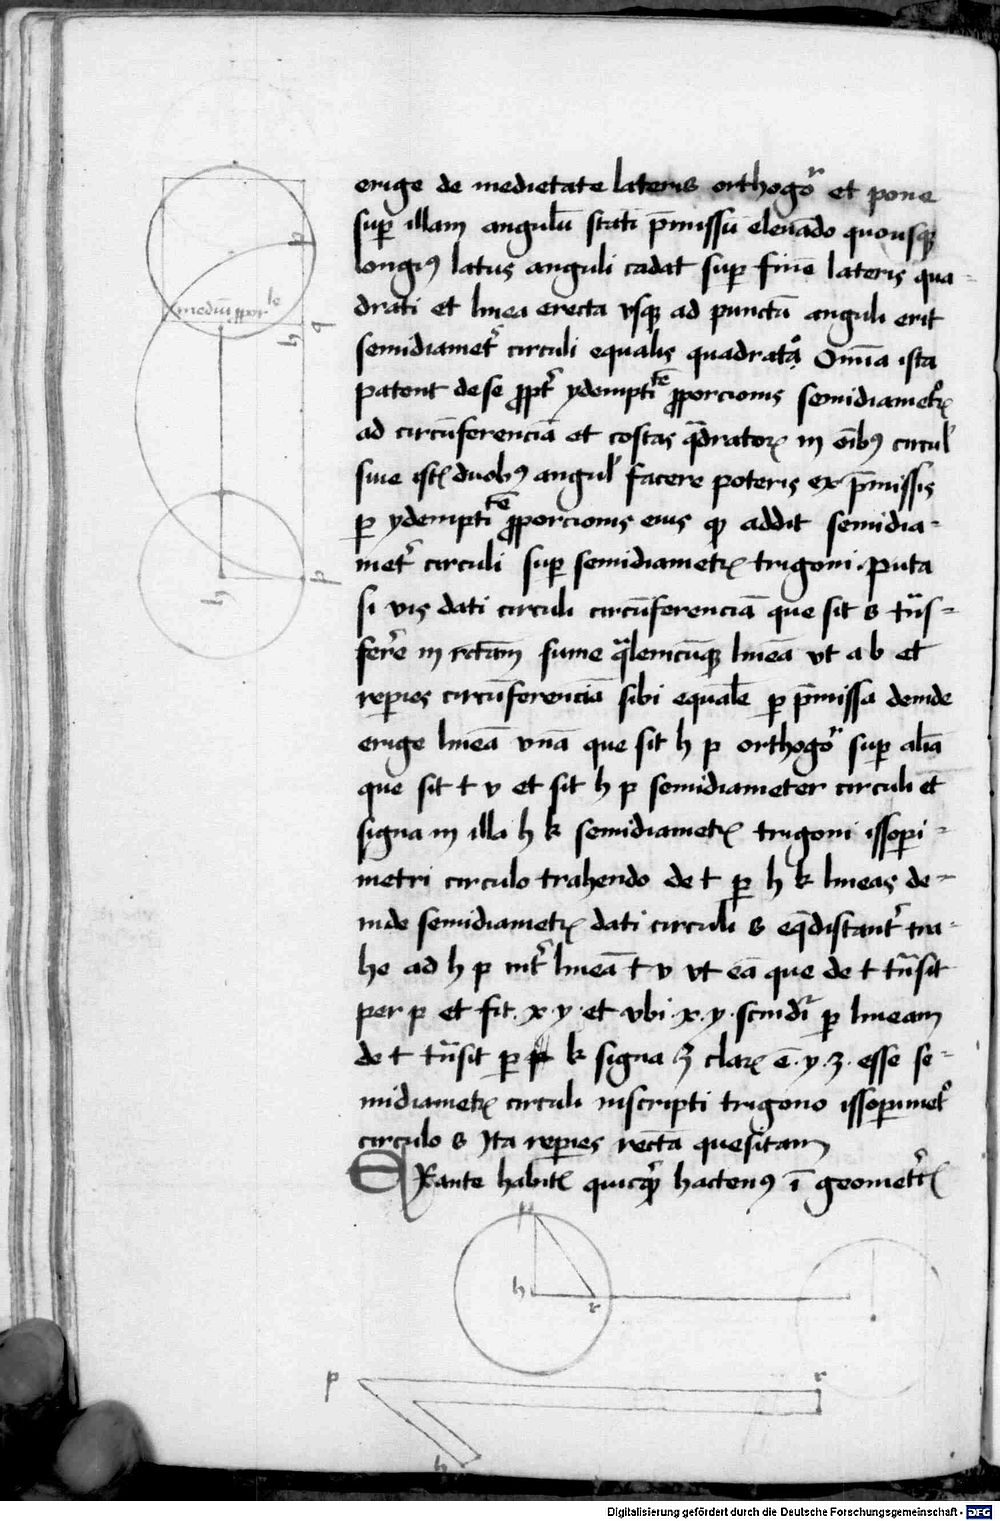 erige de medietate lateris orthogor̄ et pone
sup illam angulū stati p̄missū eleuādo quousq
longi⁹ latus anguli cadat sup finē lateris qua-
drati et linea erecta vsq ad punctū anguli erit
semidiamet͛ circuli equalis quadrato Om̄ia ista
patent de se propt͛ ydemptitē proporcionis semidiametri
ad circūferenciā et costas q̄dratorꝝ in oībꝫ circul̛
siue ist duob⁹ angul̛ facere poteris ex p̄missis
ꝑ ydemptitē proporcionis eius qd addit semidia-
met͛ circuli sup semidiametrꝝ trigoni . puta
si vis dati circuli circūferenciā que sit s tūs-
fer̄e in rctām sume q̄lemcūqꝫ lineā vt a b et
reperies circūferenciā sibi equalē ꝑ p̄missa deinde
erige lineā vnā que sit h p orthogor̄ sup aliā
que sit t v et sit h p semidiameter circuli et
signa in illa h k semidiametrꝝ trigoni issoperi-
metri circulo trahendo de t ꝑ h k lineas de-
inde semidiametrꝝ dati circuli s eq̄distant͛ tra-
he ad h p int͛ lineā t v vt eā que de t tn̄sit
per p et sit . x y . et vbi . x . y . scindir̄ ꝑ lineam
de t tn̄sit ꝑ k signa ʒ clarꝝ ē . y . ʒ . esse se-
midiametrꝝ circuli inscripti trigono issoperimetro
circulo s Ita reperies rectā quesitam
ERante habitꝭ quicqꝫ hacten⁹ ī geometrꝭ
p
mediū ppor le
q
h
p
h
p
h
r
p
r
h
Digitalisierung gefördert durch die Deutsche Forschungsgemeinschaft - DFG